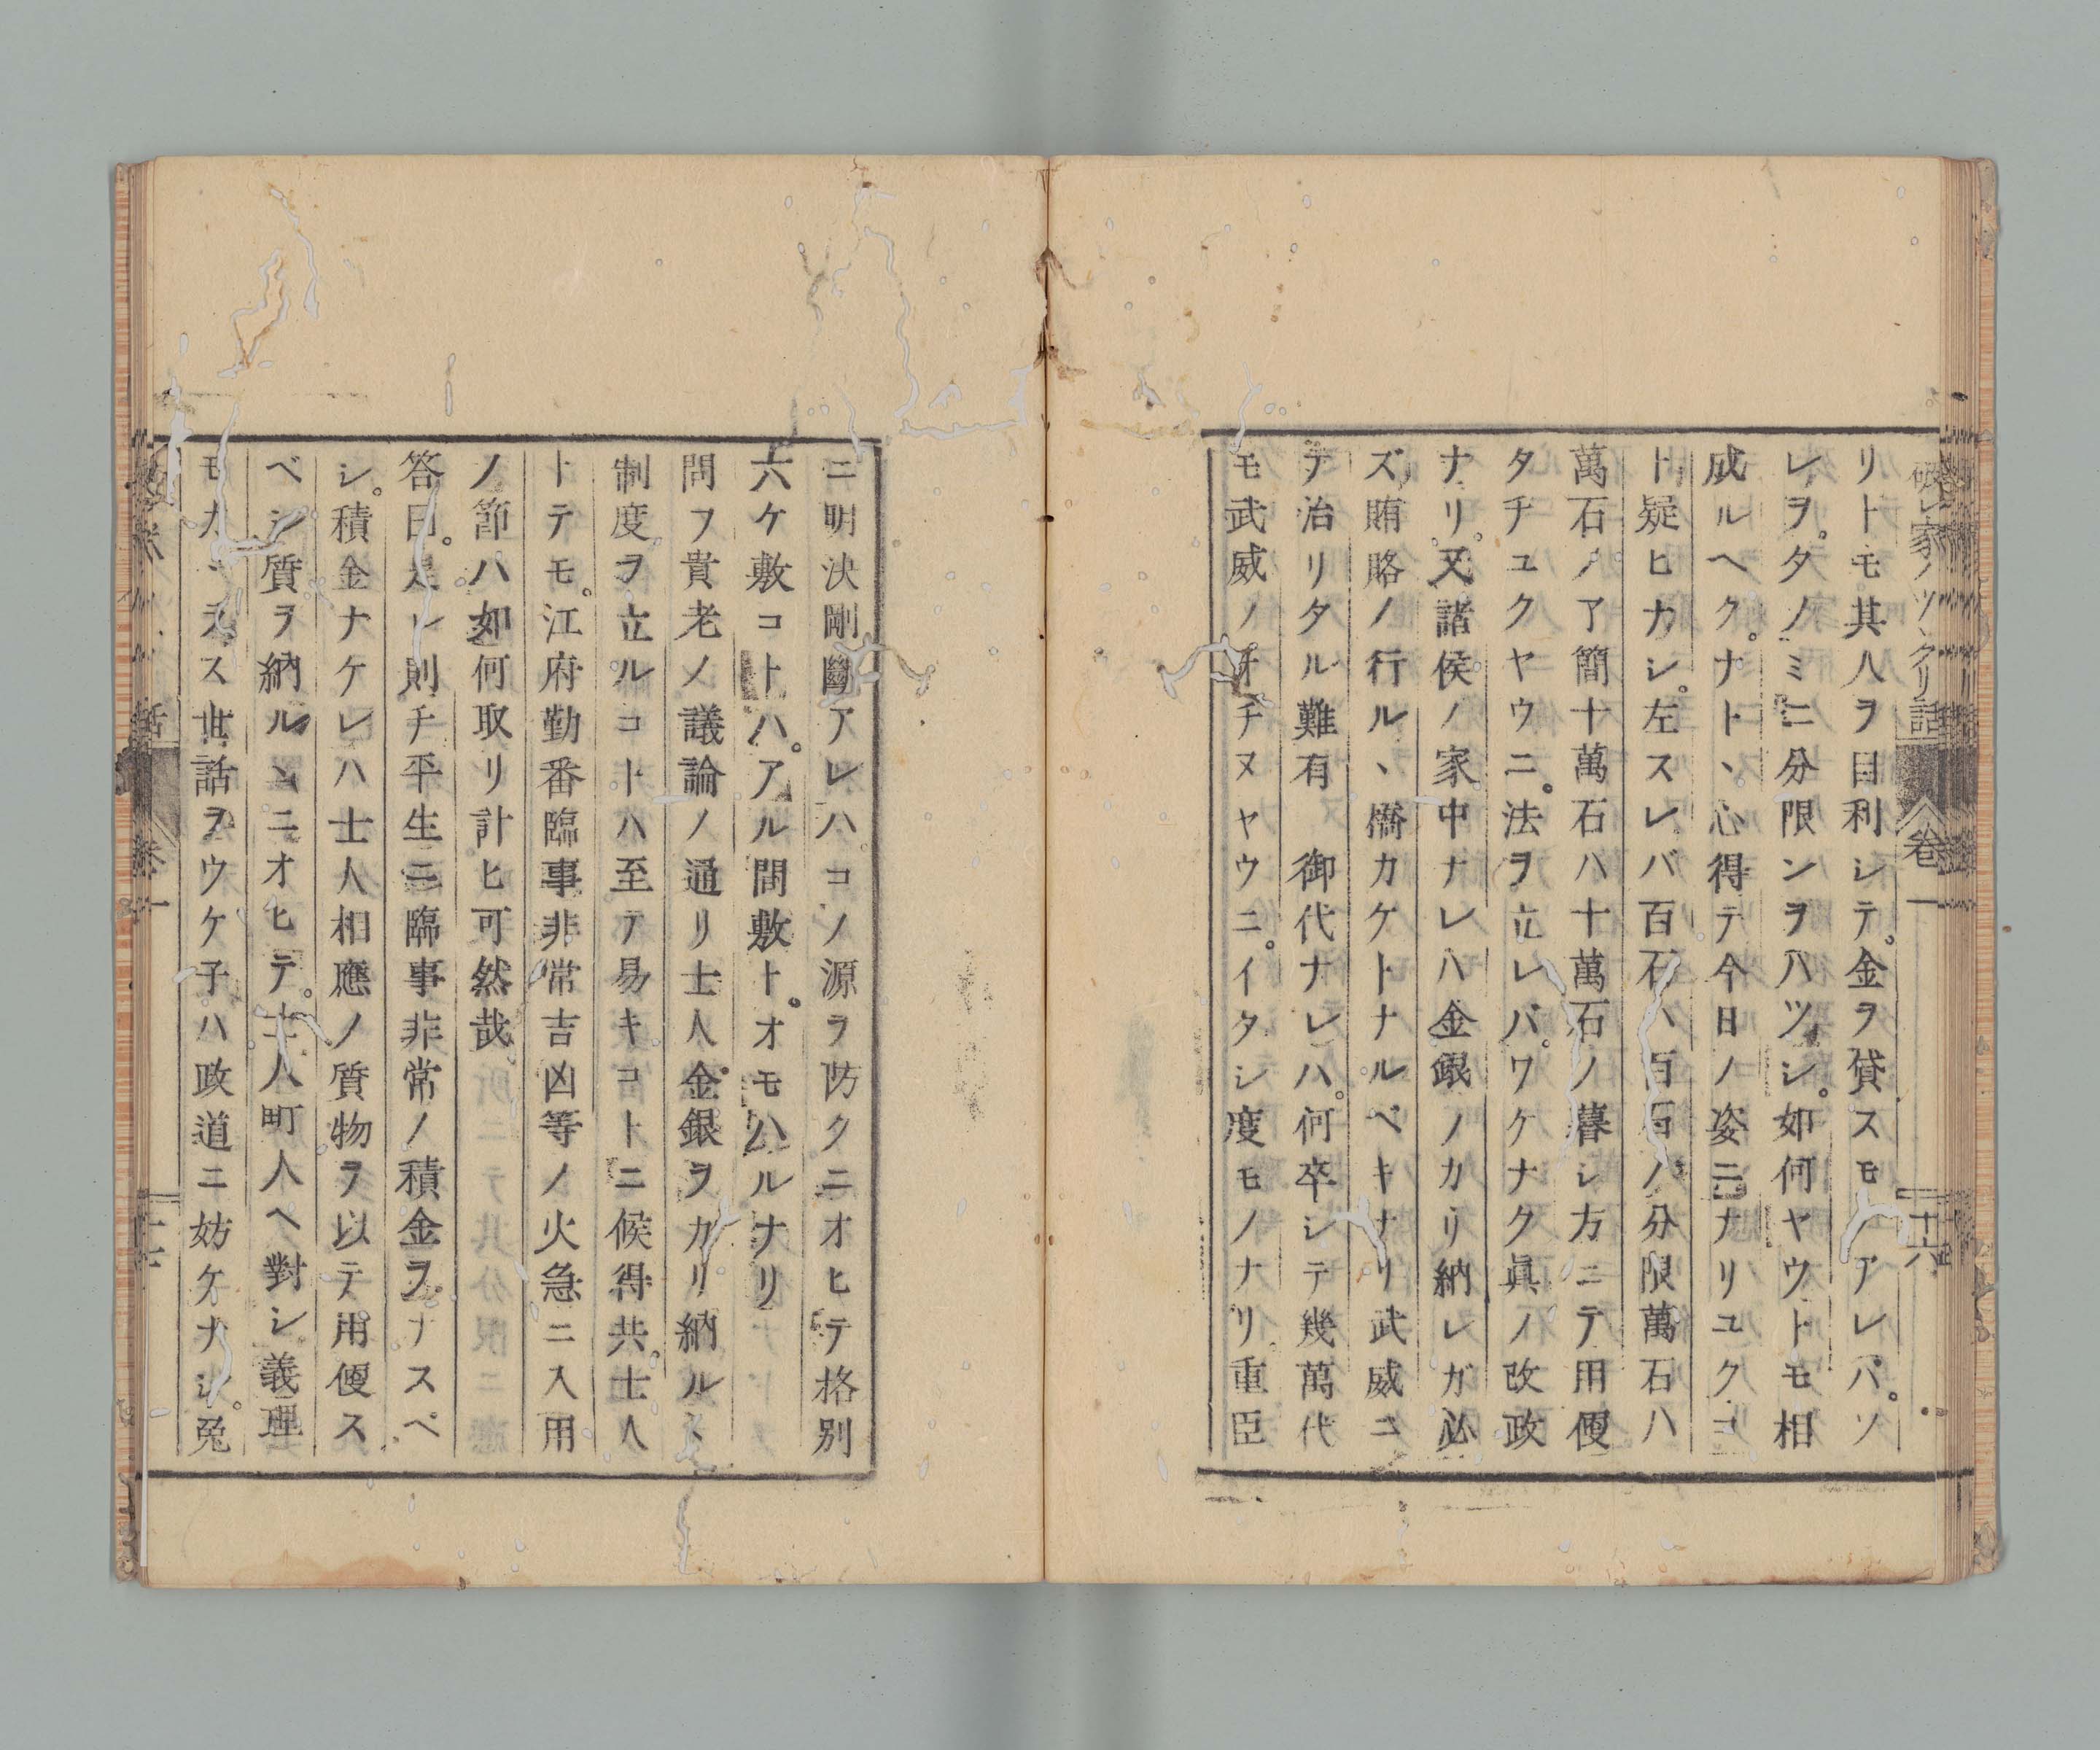 破レ家ノツヽクリ話 卷一 十六
リトモ其人ヲ目利シテ。金ヲ貸スモノアレバ。ソ
レヲ。タノミニ分限ンヲハヅシ。如何ヤウトモ相
成ルヘク。ナトヽ心得テ今日ノ姿ニナリユクコ
ト疑ヒナシ。左スレバ百石ハ百石ノ分限萬石ハ
萬石ノ了簡十萬石ハ十萬石ノ暮レ方ニテ用便
タチユクヤウニ。法ヲ立レバ。ワケナク眞ノ改政
ナリ。又諸侯ノ家中ナレハ金銀ノカリ納レガ必
ズ賄賂ノ行ルヽ橋カケトナルベキナリ武威ニ
テ治リタル難有 御代ナレハ。何卒シテ幾萬代
モ武威ノオチヌヤウニ。イタシ度モノナリ重臣
ニ明決剛斷アレハコノ源ヲ防クニオヒテ格別
六ケ敷コトハ。アル間敷ト。オモハルナリ
問フ貴老ノ議論ノ通リ士人金銀ヲカリ納ルヽ
制度ヲ立ルコトハ至テ易キコトニ候得共。士人
トテモ。江府勤番臨事非常吉凶等ノ火急ニ入用
ノ節ハ如何取リ計ヒ可然哉
答曰。是レ則チ平生ニ臨事非常ノ積金ヲナスベ
シ。積金ナケレハ士人相應ノ質物ヲ以テ用便ス
ベシ質ヲ納ルヽニオヒテ。士人町人ヘ對シ義理
モカヽラス世話ヲウケ子ハ政道ニ妨ケナシ。兎